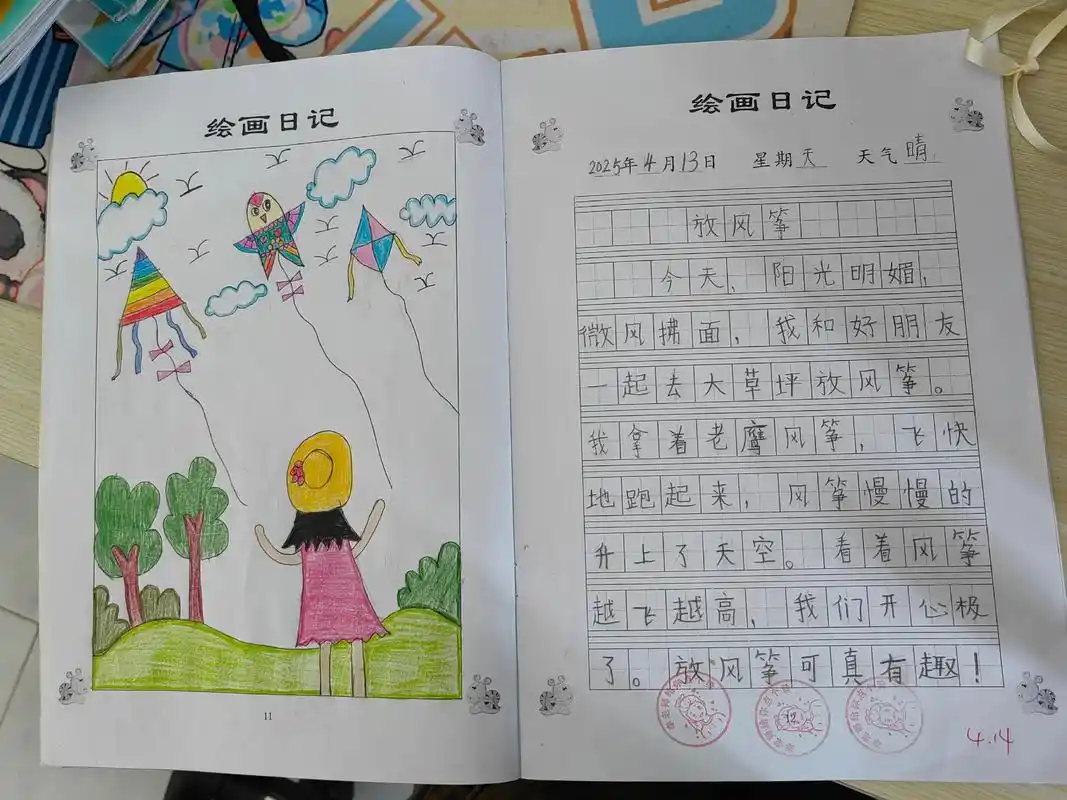 绘画日记
11
绘画日记
2025年4月13日 星期天 天气晴
放风筝
今天，阳光明媚，
微风拂面，我和好朋友
一起去大草坪放风筝。
我拿着老鹰风筝，飞快
地跑起来，风筝慢慢的
升上了天空。看着风筝
越飞越高，我们开心极
了。放风筝可真有趣！
12
4.14